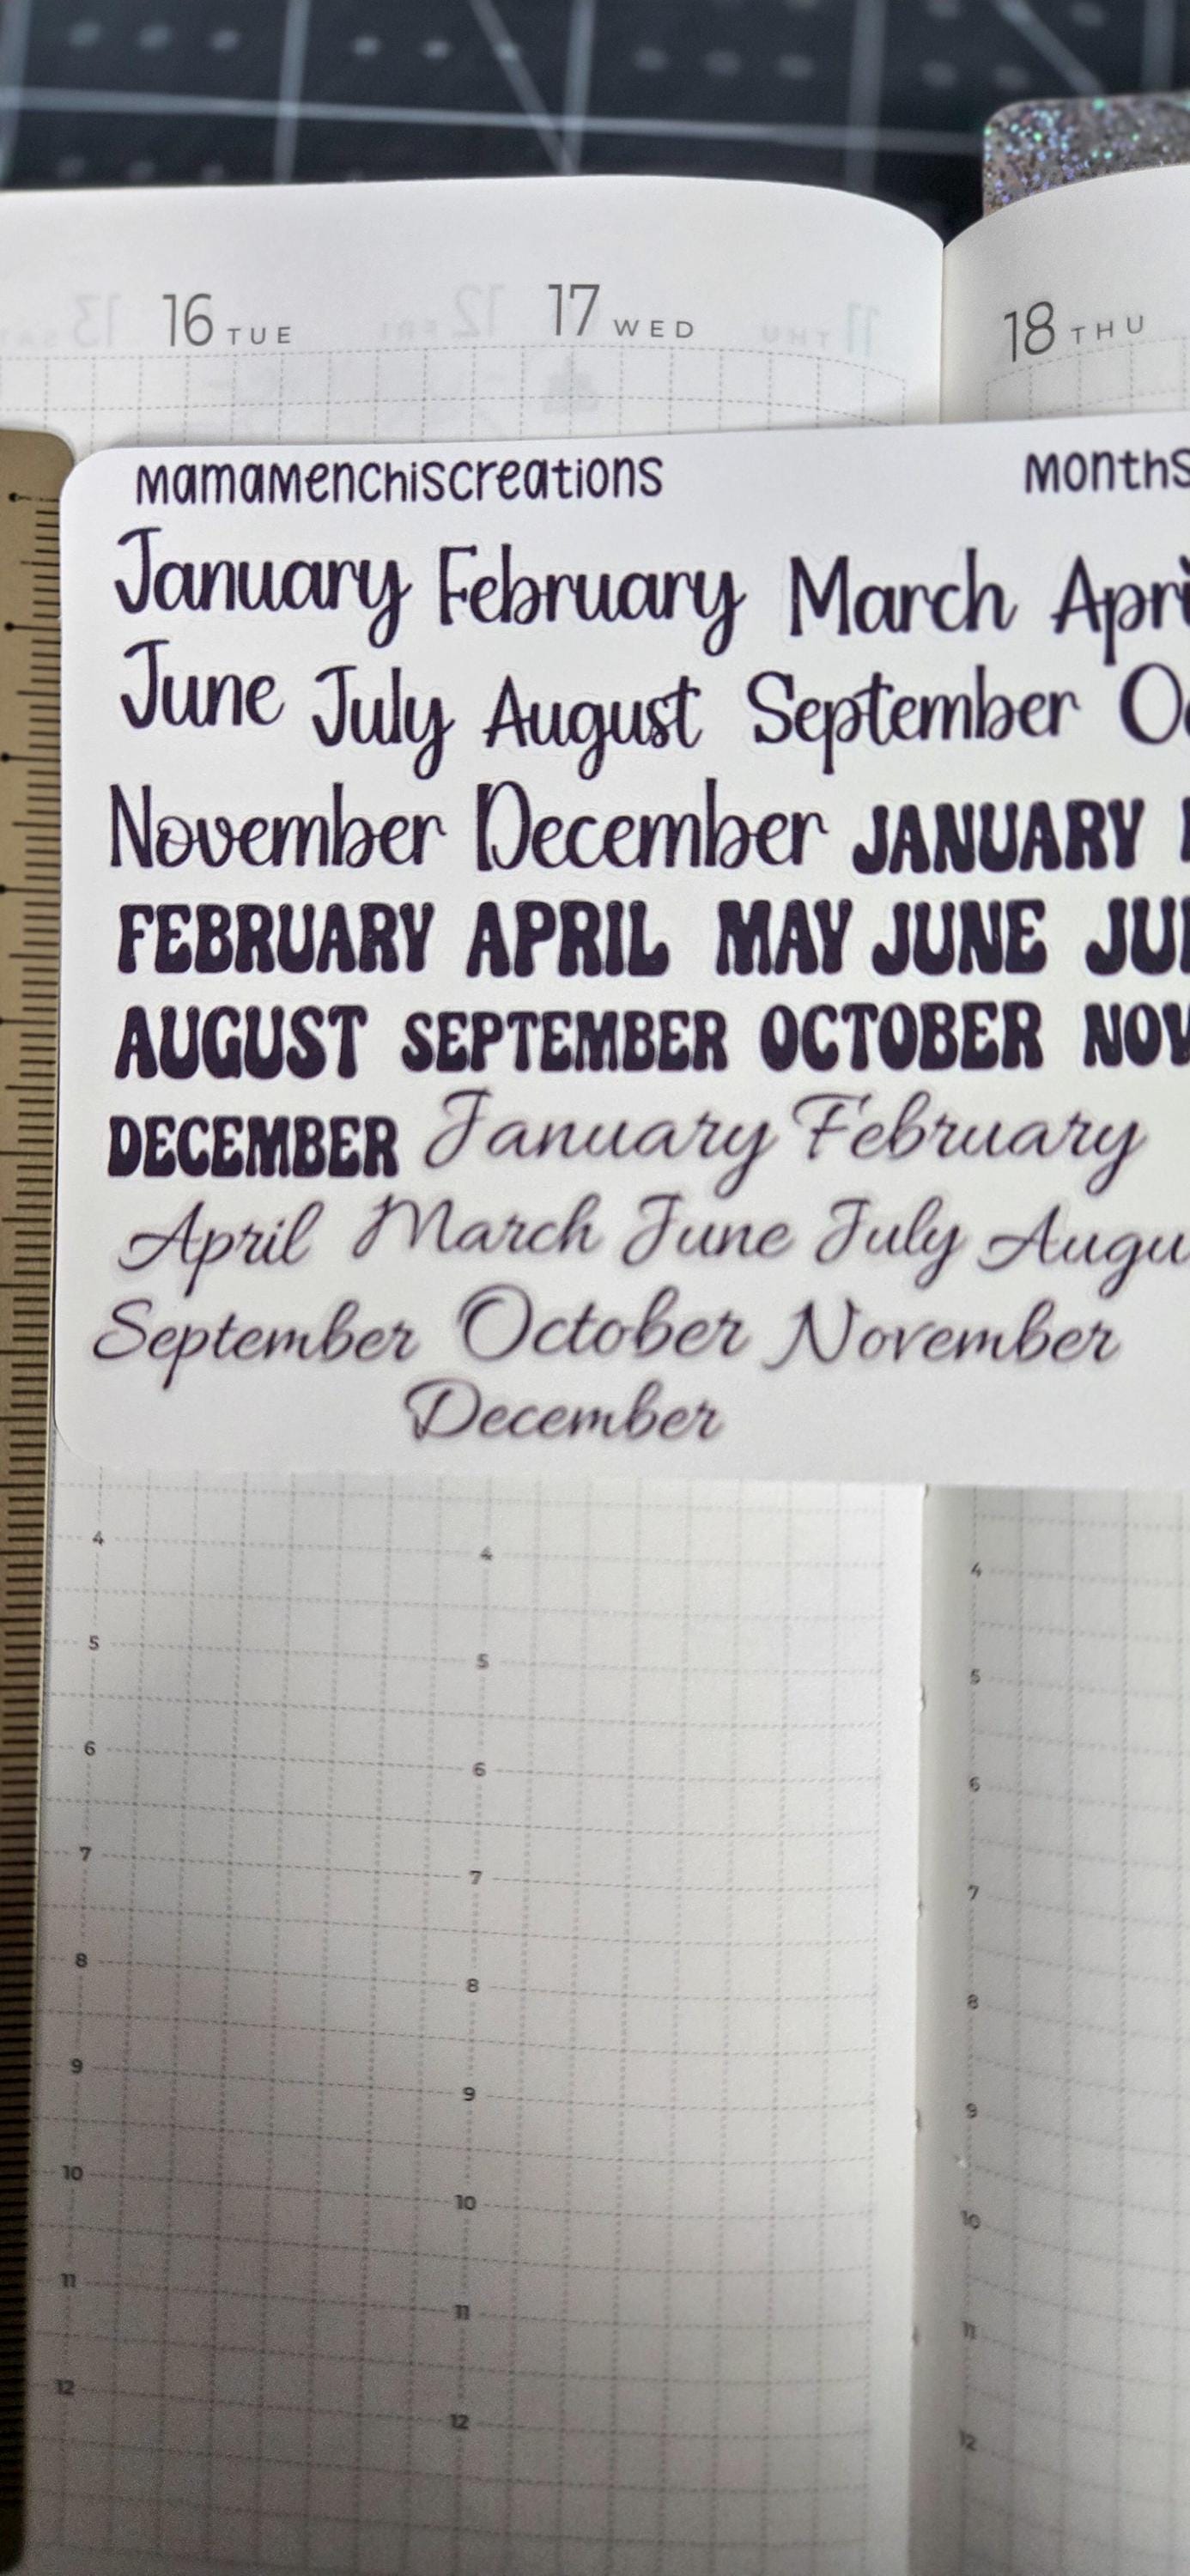 16 TUE 17 WED 18 THU
mamamenchiscreations months
January February March Apri
June July August September Oc
November December JANUARY
FEBRUARY APRIL MAY JUNE JUL
AUGUST SEPTEMBER OCTOBER NOV
DECEMBER January February
April March June July Augu
September October November
December
4 4 4
5 5 5
6 6 6
7 7 7
8 8 8
9 9 9
10 10 10
11 11 11
12 12 12